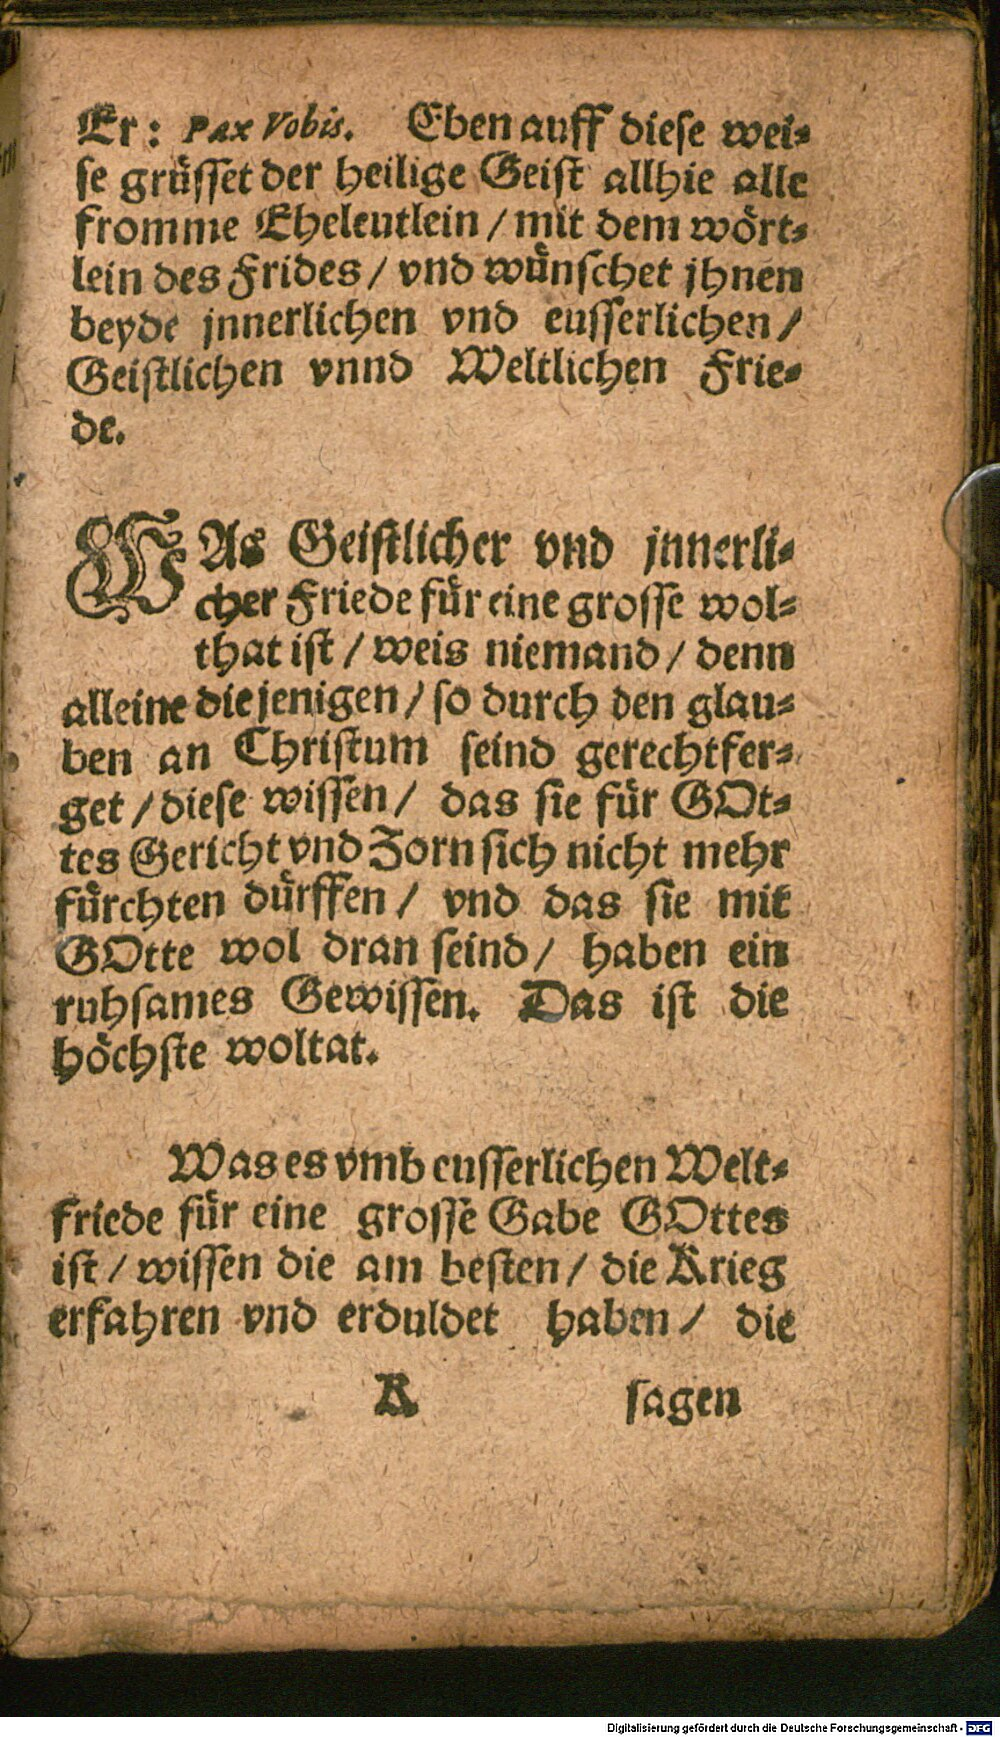 Er: Pax Vobis. Eben auff diese wei-
se grüsset der heilige Geist allhie alle
fromme Eheleutlein / mit dem wört-
lein des Frides / vnd wünschet jhnen
beyde jnnerlichen vnd eusserlichen /
Geistlichen vnnd Weltlichen Frie-
de.
WAs Geistlicher vnd jnnerli-
cher Friede für eine grosse wol-
that ist / weis niemand / denn
alleine die jenigen / so durch den glau-
ben an Christum seind gerechtfer-
get / diese wissen / das sie für GOt-
tes Gericht vnd Zorn sich nicht mehr
fürchten dürffen / vnd das sie mit
GOtte wol dran seind / haben ein
ruhsames Gewissen. Das ist die
höchste woltat.
Was es vmb eusserlichen Welt-
friede für eine grosse Gabe GOttes
ist / wissen die am besten / die Krieg
erfahren vnd erduldet haben / die
K sagen
Digitalisierung gefördert durch die Deutsche Forschungsgemeinschaft - DFG